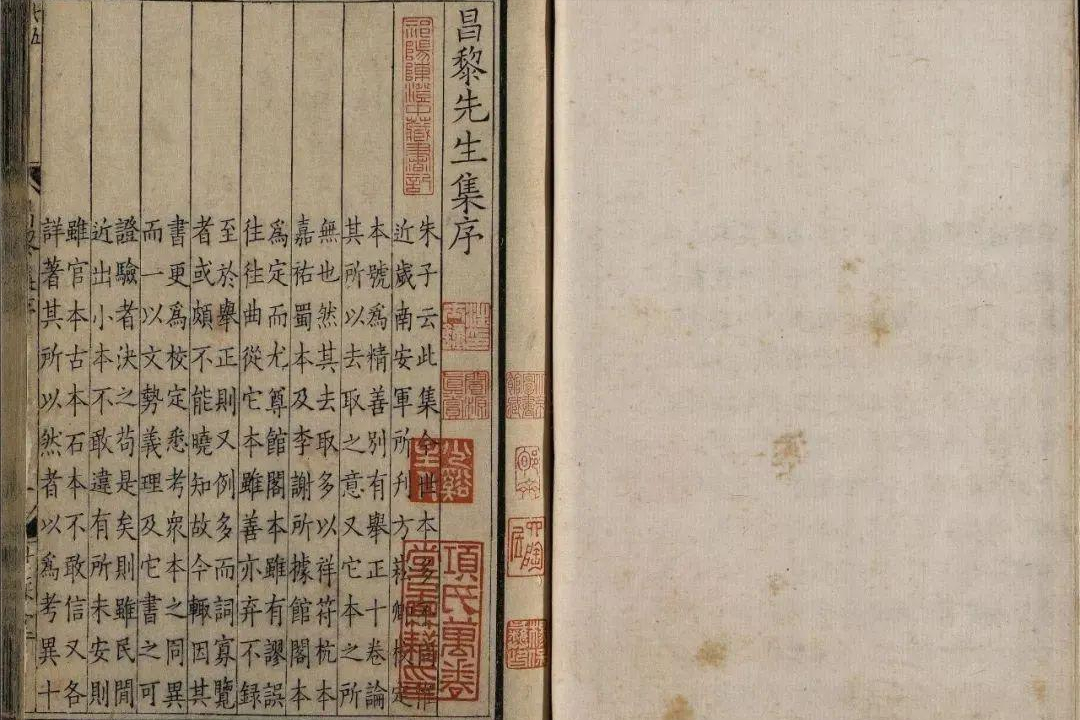 昌黎先生集序
祁陽陳澄中藏書記
朱子云此集今世本多不同惟
近歲南安軍所刊方崧卿校定
本號爲精善別有舉正十卷論
其所以去取之意又它本之所
無也然其去取多以祥符杭本
嘉祐蜀本及李謝所據館閣本
爲定而尤尊館閣本雖有謬誤
往往曲從它本雖善亦弃不錄
至於舉正則又例多而詞寡覽
者或頗不能曉知故今輒因其
書更爲校定悉考衆本之同異
而一以文勢義理及它書之可
證驗者決之苟是矣則雖民閒
近出小本不敢違有所未安則
雖官本古本石本不敢信又各
詳著其所以然者以爲考異十
項氏萬卷
堂圖籍印